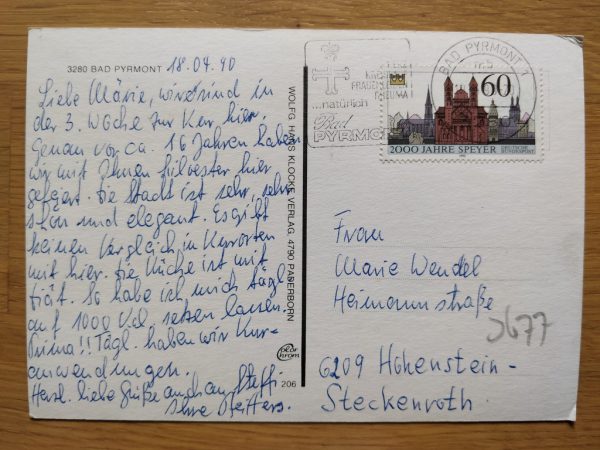 3280 BAD PYRMONT 18.04.90
Liebe Märie, wir sind in
der 3. Woche zur Kur hier.
Genau vor ca. 16 Jahren haben
wir mit Ihnen Silvester hier
gefeiert. Die Stadt ist sehr, sehr
schön und elegant. Es gibt
keinen Vergleich in Kurorten
mit hier. Die Küche ist mit
Diät. So habe ich mich tägl.
auf 1000 Kal. setzen lassen.
Prima!! Tägl. haben wir Kur-
anwendungen.
Herzl. liebe Grüße auch an Steffi
Ihre Pfeiffers.
WOLFG. HANS KLOCKE VERLAG, 4790 PADERBORN
color
chrom
206
FRAUEN
RHEUMA
natürlich
Bad
PYRMONT
BAD PYRMONT 1
60
2000 JAHRE SPEYER
DEUTSCHE BUNDESPOST
Frau
Marie Wendel
Heimannstraße
6209 Hohenstein-
Steckenroth
3677